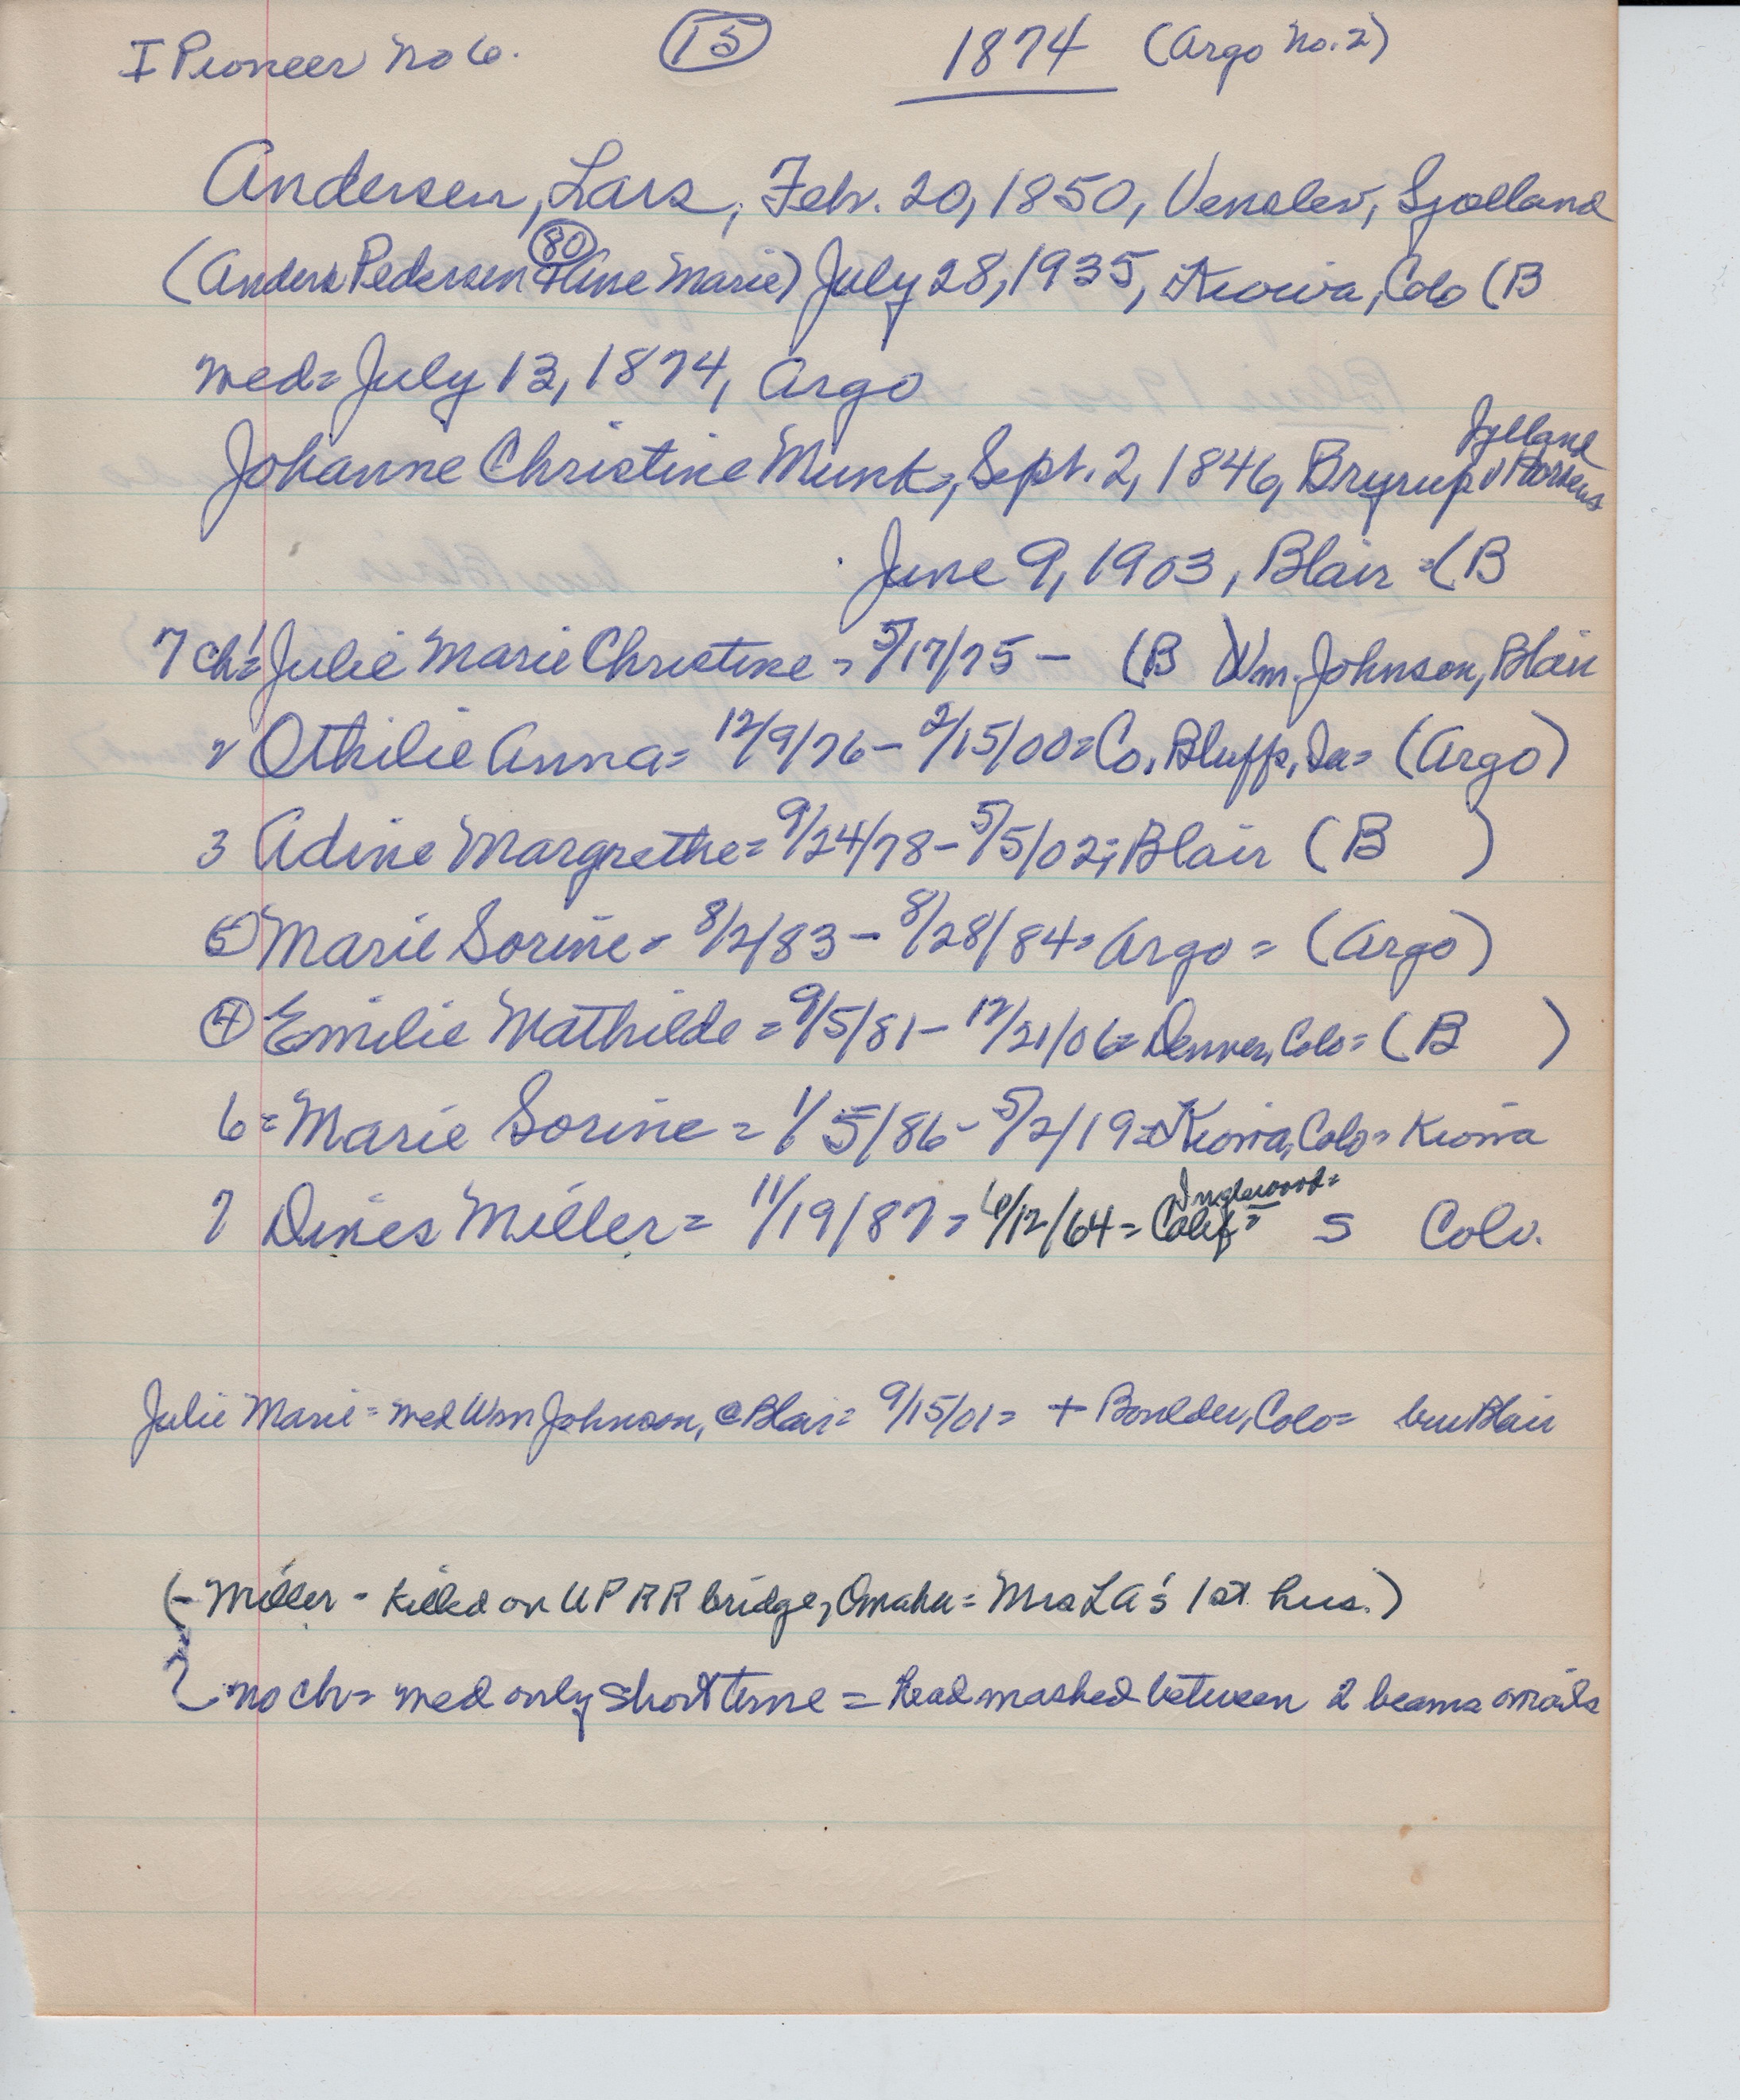 I Pioneer No 6. 15 1874 (Argo No. 2)
Andersen, Lars, Febr. 20, 1850, Venslev, Sjælland
80
(Anders Pedersen + Ane Marie) July 28, 1935, Kiowa, Colo (B
med= July 13, 1874, Argo
Jylland
Johanne Christine Munk, Sept. 2, 1846, Bryrup v Horsens
June 9, 1903, Blair =(B
7 ch= Julie Marie Christine = 5/17/75 - (B ) Wm. Johnson, Blair
2 Othilie Anna= 12/9/76 - 2/15/00= Co. Bluffs, Ia= (Argo)
3 Adine Margrethe= 9/24/78 - 5/5/02; Blair (B )
5 Marie Sorine= 8/2/83 - 8/28/84= Argo = (Argo)
4 Emilie Mathilde = 9/5/81 - 12/21/06= Denver, Colo= (B )
6= Marie Sorine = 1/5/86 - 5/2/19= Kiowa, Colo= Kiowa
Inglewood=
7 Dines Miller= 11/19/87= 6/12/64= Calif= S Colo.
Julie Marie= med Wm Johnson, @ Blair= 9/15/01= + Boulder, Colo= bur Blair
(- Miller - Killed on U P R R bridge, Omaha= Mrs LA's 1st hus.)
no ch= med only short time = Head mashed between 2 beams or rails